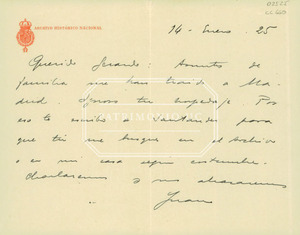 ARCHIVO HISTÓRICO NACIONAL
14 - Enero - 25
Querido Gerardo: Asuntos de
familia me han traido a Ma-
drid. Ignoro tu hospedaje. Por
eso te escribo a Santander para
que tú me busques en el Archivo
o en mi casa según costumbre.
Charlaremos y nos abrazaremos
Juan